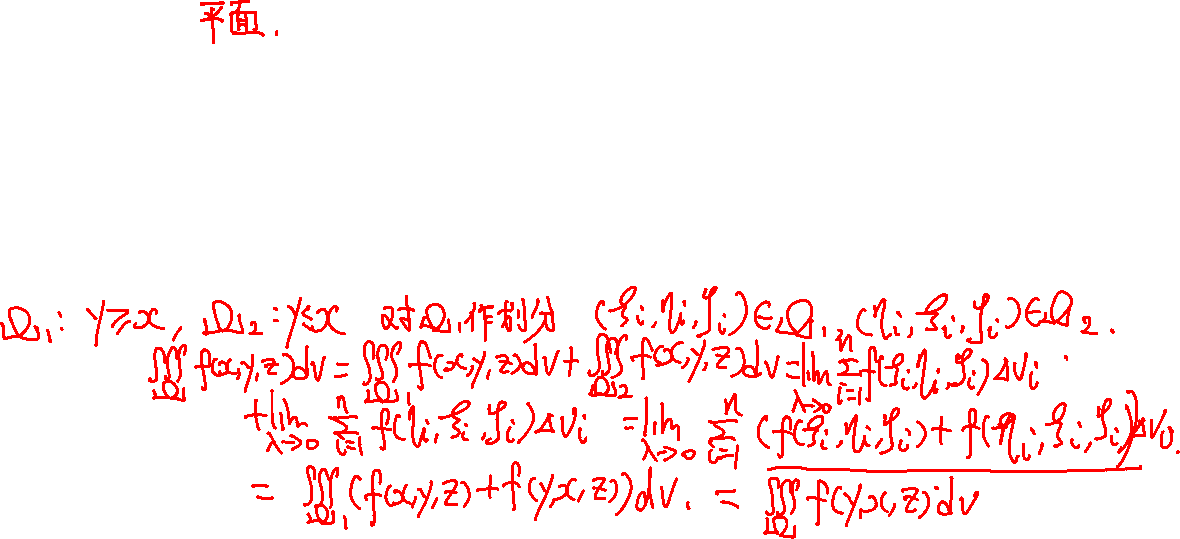 平面.
Ω₁: y≥x, Ω₂: y≤x 对Ω₁作划分 (ξᵢ,ηᵢ,ζᵢ)∈Ω₁, (ηᵢ,ξᵢ,ζᵢ)∈Ω₂.
∭_Ω f(x,y,z)dv = ∭_Ω₁ f(x,y,z)dv + ∭_Ω₂ f(x,y,z)dv = lim_{λ→0} ∑_{i=1}^{n} f(ξᵢ,ηᵢ,ζᵢ)Δvᵢ
+ lim_{λ→0} ∑_{i=1}^{n} f(ηᵢ,ξᵢ,ζᵢ)Δvᵢ = lim_{λ→0} ∑_{i=1}^{n} (f(ξᵢ,ηᵢ,ζᵢ) + f(ηᵢ,ξᵢ,ζᵢ))Δvᵢ.
= ∭_Ω₁ (f(x,y,z) + f(y,x,z))dv. = ∭_Ω f(y,x,z)dv